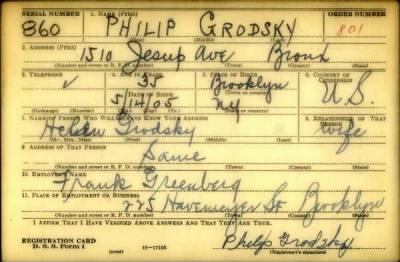 SERIAL NUMBER 1. NAME (Print) ORDER NUMBER
860 PHILIP GRODSKY 801
(First) (Middle) (Last)
2. ADDRESS (Print)
1510 Jesup Ave Bronx
(Number and street or R. F. D. number) (Town) (County) (State)
3. TELEPHONE 4. AGE IN YEARS 5. PLACE OF BIRTH 6. COUNTRY OF CITIZENSHIP
35 Brooklyn
DATE OF BIRTH (Town or county)
5/14/05 NY U.S.
(Exchange) (Number) (Mo.) (Day) (Yr.) (State or country)
7. NAME OF PERSON WHO WILL ALWAYS KNOW YOUR ADDRESS 8. RELATIONSHIP OF THAT PERSON
Helen Grodsky wife
(Mr., Mrs., Miss) (First) (Middle) (Last)
9. ADDRESS OF THAT PERSON
Same
(Number and street or R. F. D. number) (Town) (County) (State)
10. EMPLOYER'S NAME
Frank Greenberg
11. PLACE OF EMPLOYMENT OR BUSINESS
225 Havemeyer St Brooklyn
(Number and street or R. F. D. number) (Town) (County) (State)
I AFFIRM THAT I HAVE VERIFIED ABOVE ANSWERS AND THAT THEY ARE TRUE.
REGISTRATION CARD
D. S. S. Form 1 (over) 16-17105 Philip Grodsky
(Registrant's signature)